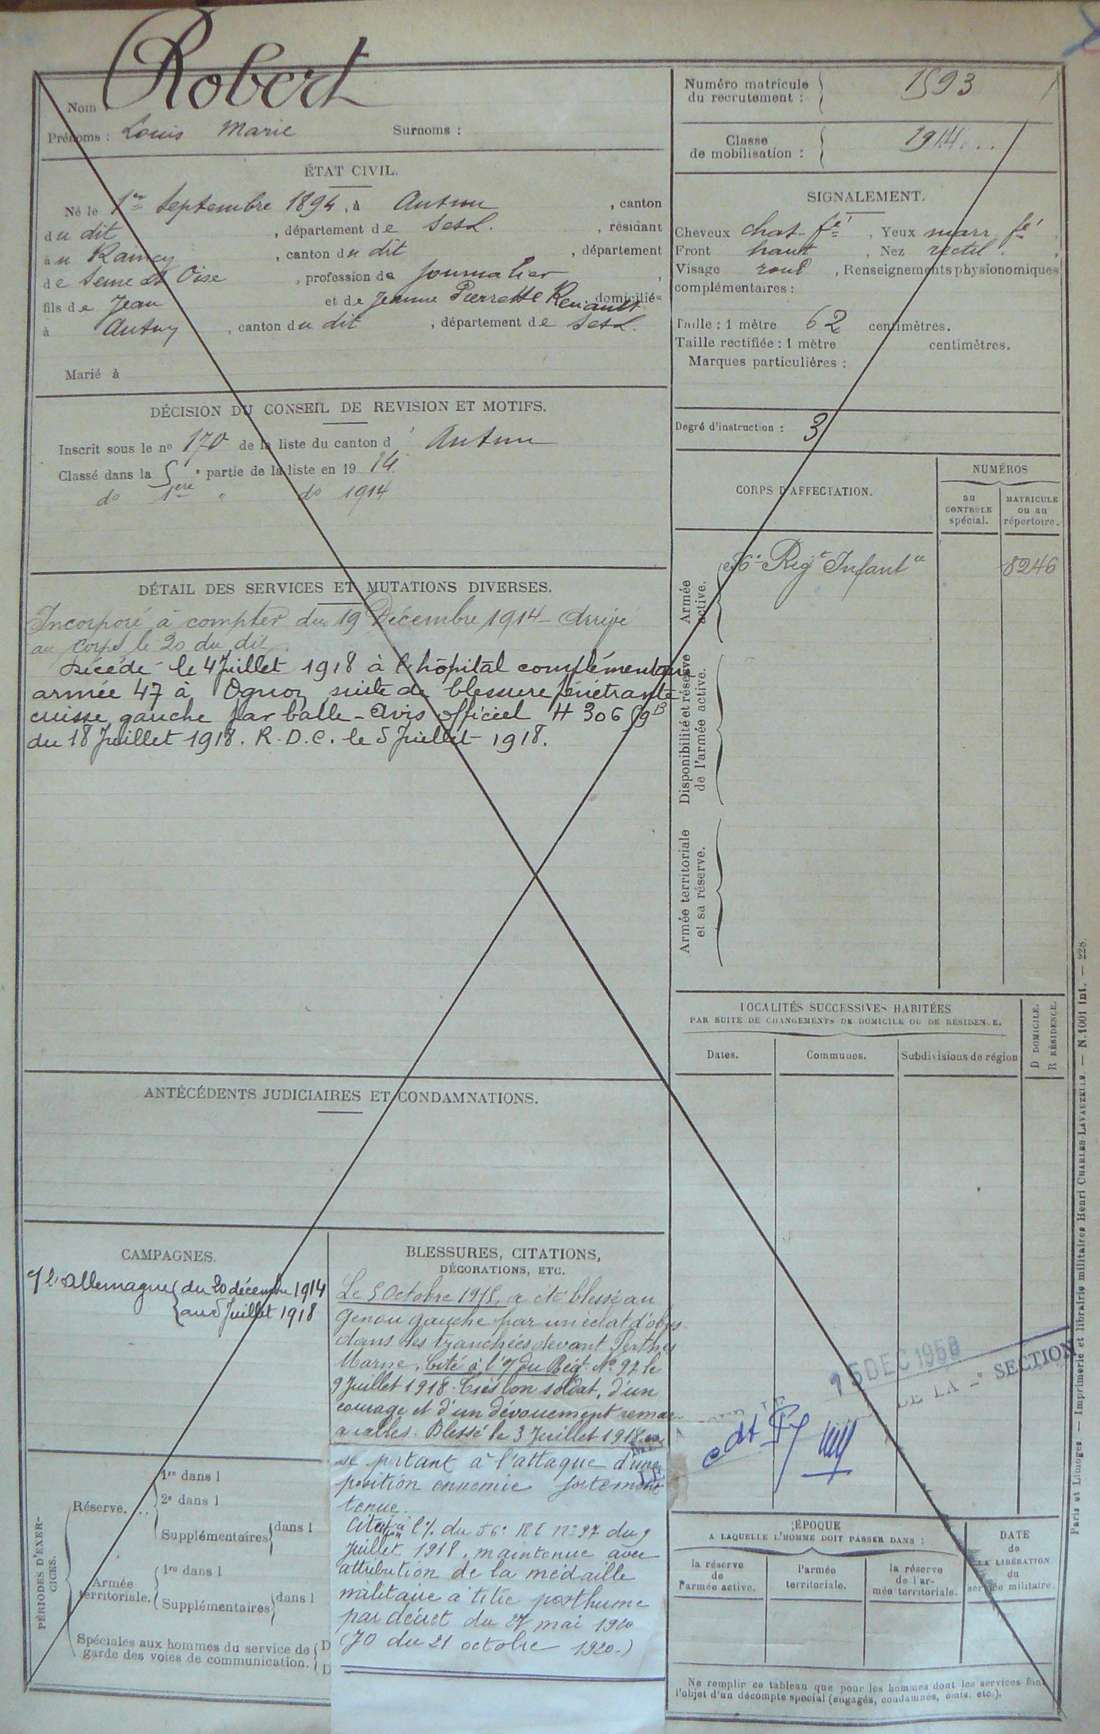 Nom Robert
Prénoms : Louis Marie Surnoms :
Numéro matricule du recrutement : 1593
Classe de mobilisation : 1914
ÉTAT CIVIL.
Né le 1er Septembre 1894, à Autun, canton
du dit, département de S et L., résidant
au Raincy, canton du dit, département
de Seine et Oise, profession de Journalier
fils de Jean et de Jeanne Pierrette Renault domiciliés
à Autun, canton du dit, département de S et L.
Marié à
SIGNALEMENT.
Cheveux chat. fé, Yeux marr. fé
Front haut, Nez rectil.
Visage rond, Renseignements physionomiques
complémentaires :
Taille : 1 mètre 62 centimètres.
Taille rectifiée : 1 mètre centimètres.
Marques particulières :
Degré d'instruction : 3
DÉCISION DU CONSEIL DE REVISION ET MOTIFS.
Inscrit sous le no 170 de la liste du canton d'Autun
Classé dans la 5e partie de la liste en 1914
do 1ère " do 1914
CORPS D'AFFECTATION.
NUMÉROS
au CONTROLE spécial.
MATRICULE ou au répertoire.
Armée active.
56e Régt Infantie 8246
Disponibilité et réserve de l'armée active.
Armée territoriale et sa réserve.
DÉTAIL DES SERVICES ET MUTATIONS DIVERSES.
Incorporé à compter du 19 Décembre 1914 - Arrivé
au corps le 20 du dit.
Décédé le 4 Juillet 1918 à l'hôpital complémentaire
armée 47 à Ognon suite de blessure pénétrante
cuisse gauche par balle - Avis officiel H 306
du 18 Juillet 1918. R.D.C. le 5 Juillet 1918.
LOCALITÉS SUCCESSIVES HABITÉES
PAR SUITE DE CHANGEMENTS DE DOMICILE OU DE RÉSIDENCE.
Dates.
Communes.
Subdivisions de région
D DOMICILE.
R RÉSIDENCE.
ANTÉCÉDENTS JUDICIAIRES ET CONDAMNATIONS.
CAMPAGNES.
c/ l'Allemagne (du 20 décembre 1914
au 5 Juillet 1918
BLESSURES, CITATIONS,
DÉCORATIONS, ETC.
Le 5 Octobre 1915, a été blessé au
genou gauche par un éclat d'obus
dans les tranchées devant Perthes
Marne. Cité à l'O/ du Régt No 97 le
9 Juillet 1918. Très bon soldat, d'un
courage et d'un dévouement remar-
quables. Blessé le 3 Juillet 1918 en
se portant à l'attaque d'une
position ennemie fortement
tenue.
Citation à l'O/. du 56e R I no 97 du 9
Juillet 1918, maintenue avec
attribution de la médaille
militaire à titre posthume
par décret du 27 mai 1920
(JO du 21 octobre 1920.)
15 DEC 1958
DE LA SECTION
PÉRIODES D'EXERCICES.
Réserve.
1re dans l
2e dans l
Supplémentaires dans l
Armée territoriale.
1re dans l
Supplémentaires dans l
Spéciales aux hommes du service de
garde des voies de communication.
D
D
ÉPOQUE
A LAQUELLE L'HOMME DOIT PASSER DANS :
la réserve de l'armée active.
l'armée territoriale.
la réserve de l'armée territoriale.
DATE de LA LIBÉRATION du service militaire.
Ne remplir ce tableau que pour les hommes dont les services font
l'objet d'un décompte spécial (engagés, condamnés, omis, etc.).
Paris et Limoges. — Imprimerie et librairie militaires Henri CHARLES-LAVAUZELLE. — N. 1001 int. — 228.